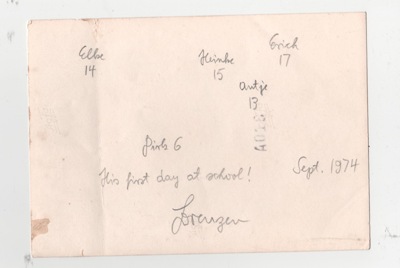 Erich
Elke Heinke 17
14 15
Antje
13
6
His first day at school! Sept. 1974
Lorenzen